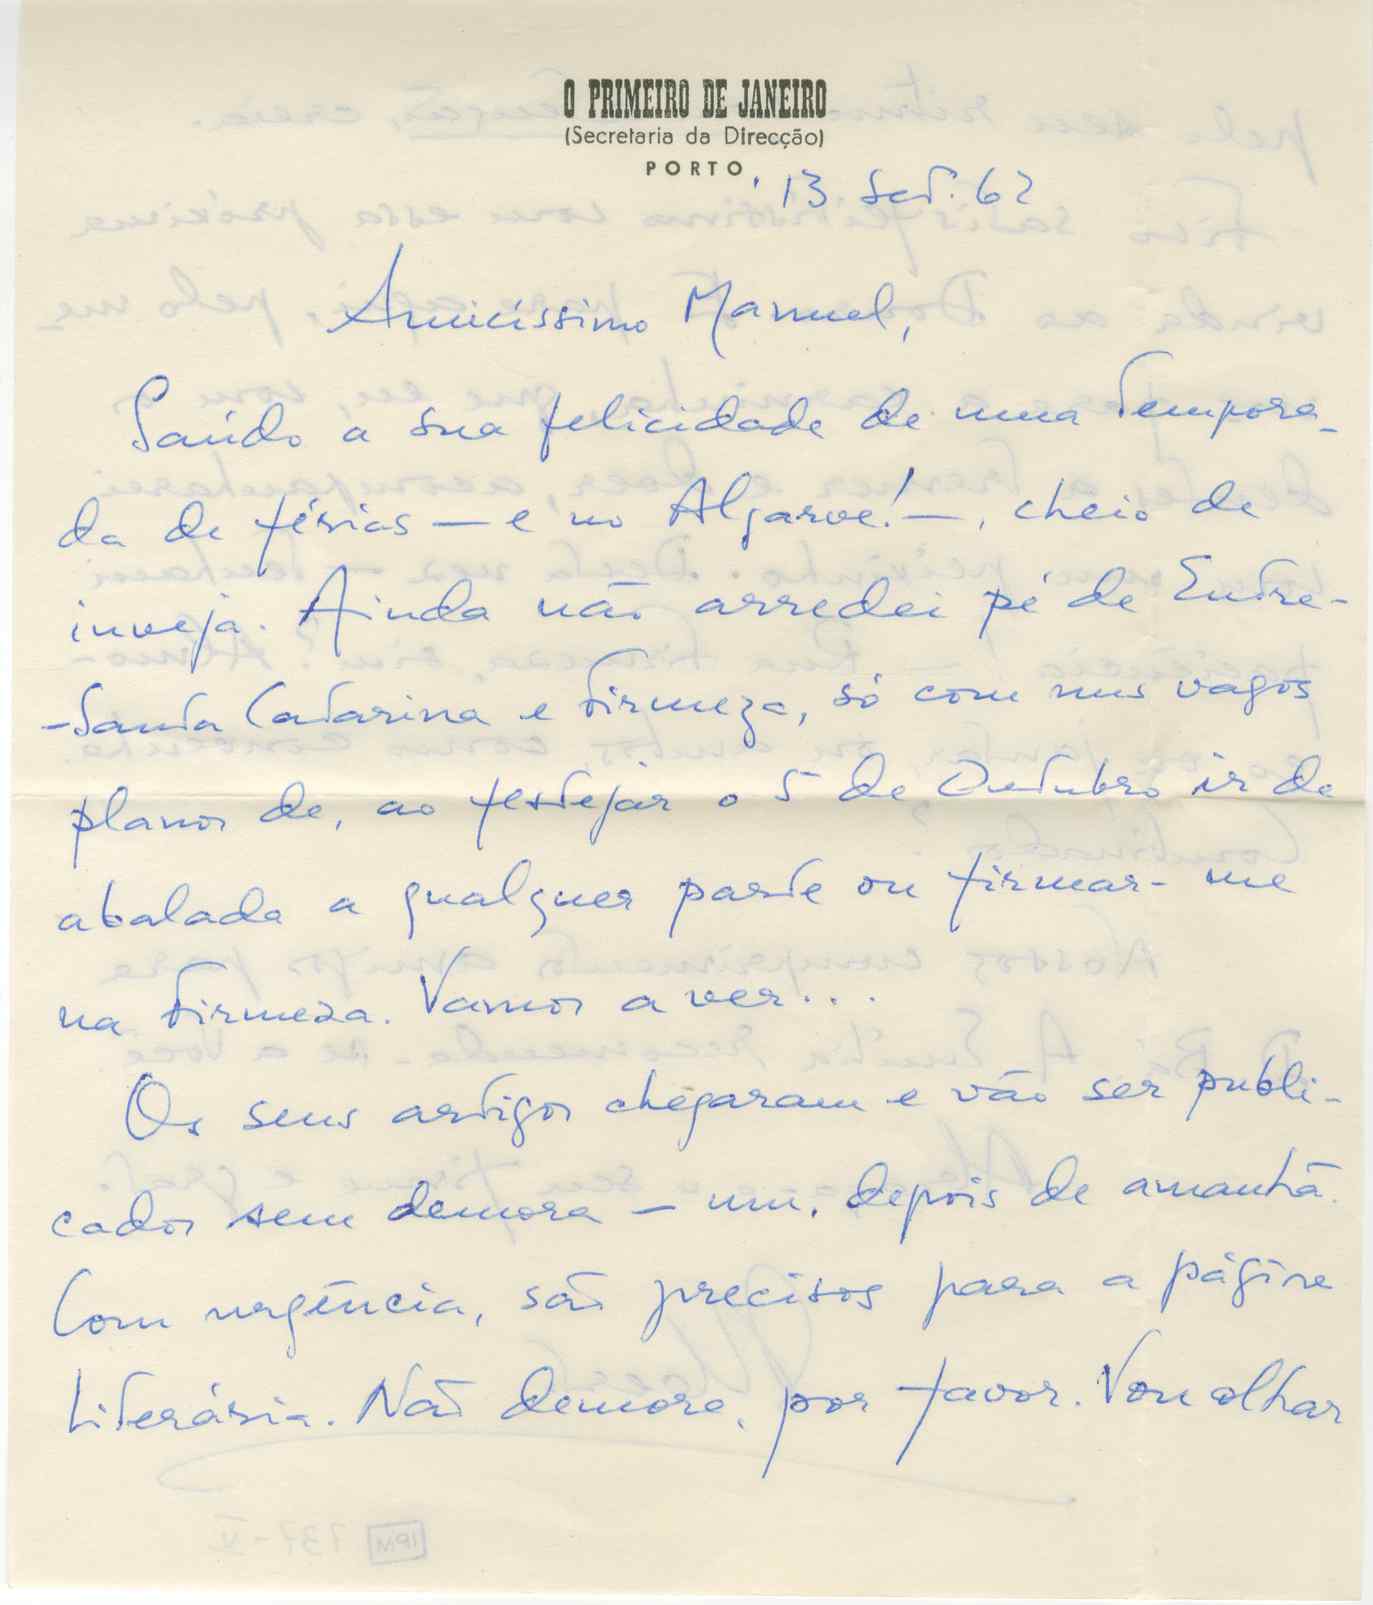 O PRIMEIRO DE JANEIRO
(Secretaria da Direcção)
PORTO,
13. Set. 62
Amicíssimo Manuel,
Saúdo a sua felicidade de uma tempora-
da de férias — e no Algarve! —, cheio de
inveja. Ainda não arredei pé de Entre-
-Santa Catarina e Firmeza, só com uns vagos
planos de, ao festejar o 5 de Outubro ir de
abalada a qualquer parte ou firmar-me
na Firmeza. Vamos a ver...
Os seus artigos chegaram e vão ser publi-
cados sem demora — um, depois de amanhã.
Com urgência, são precisos para a página
Literária. Não demore, por favor. Vou olhar